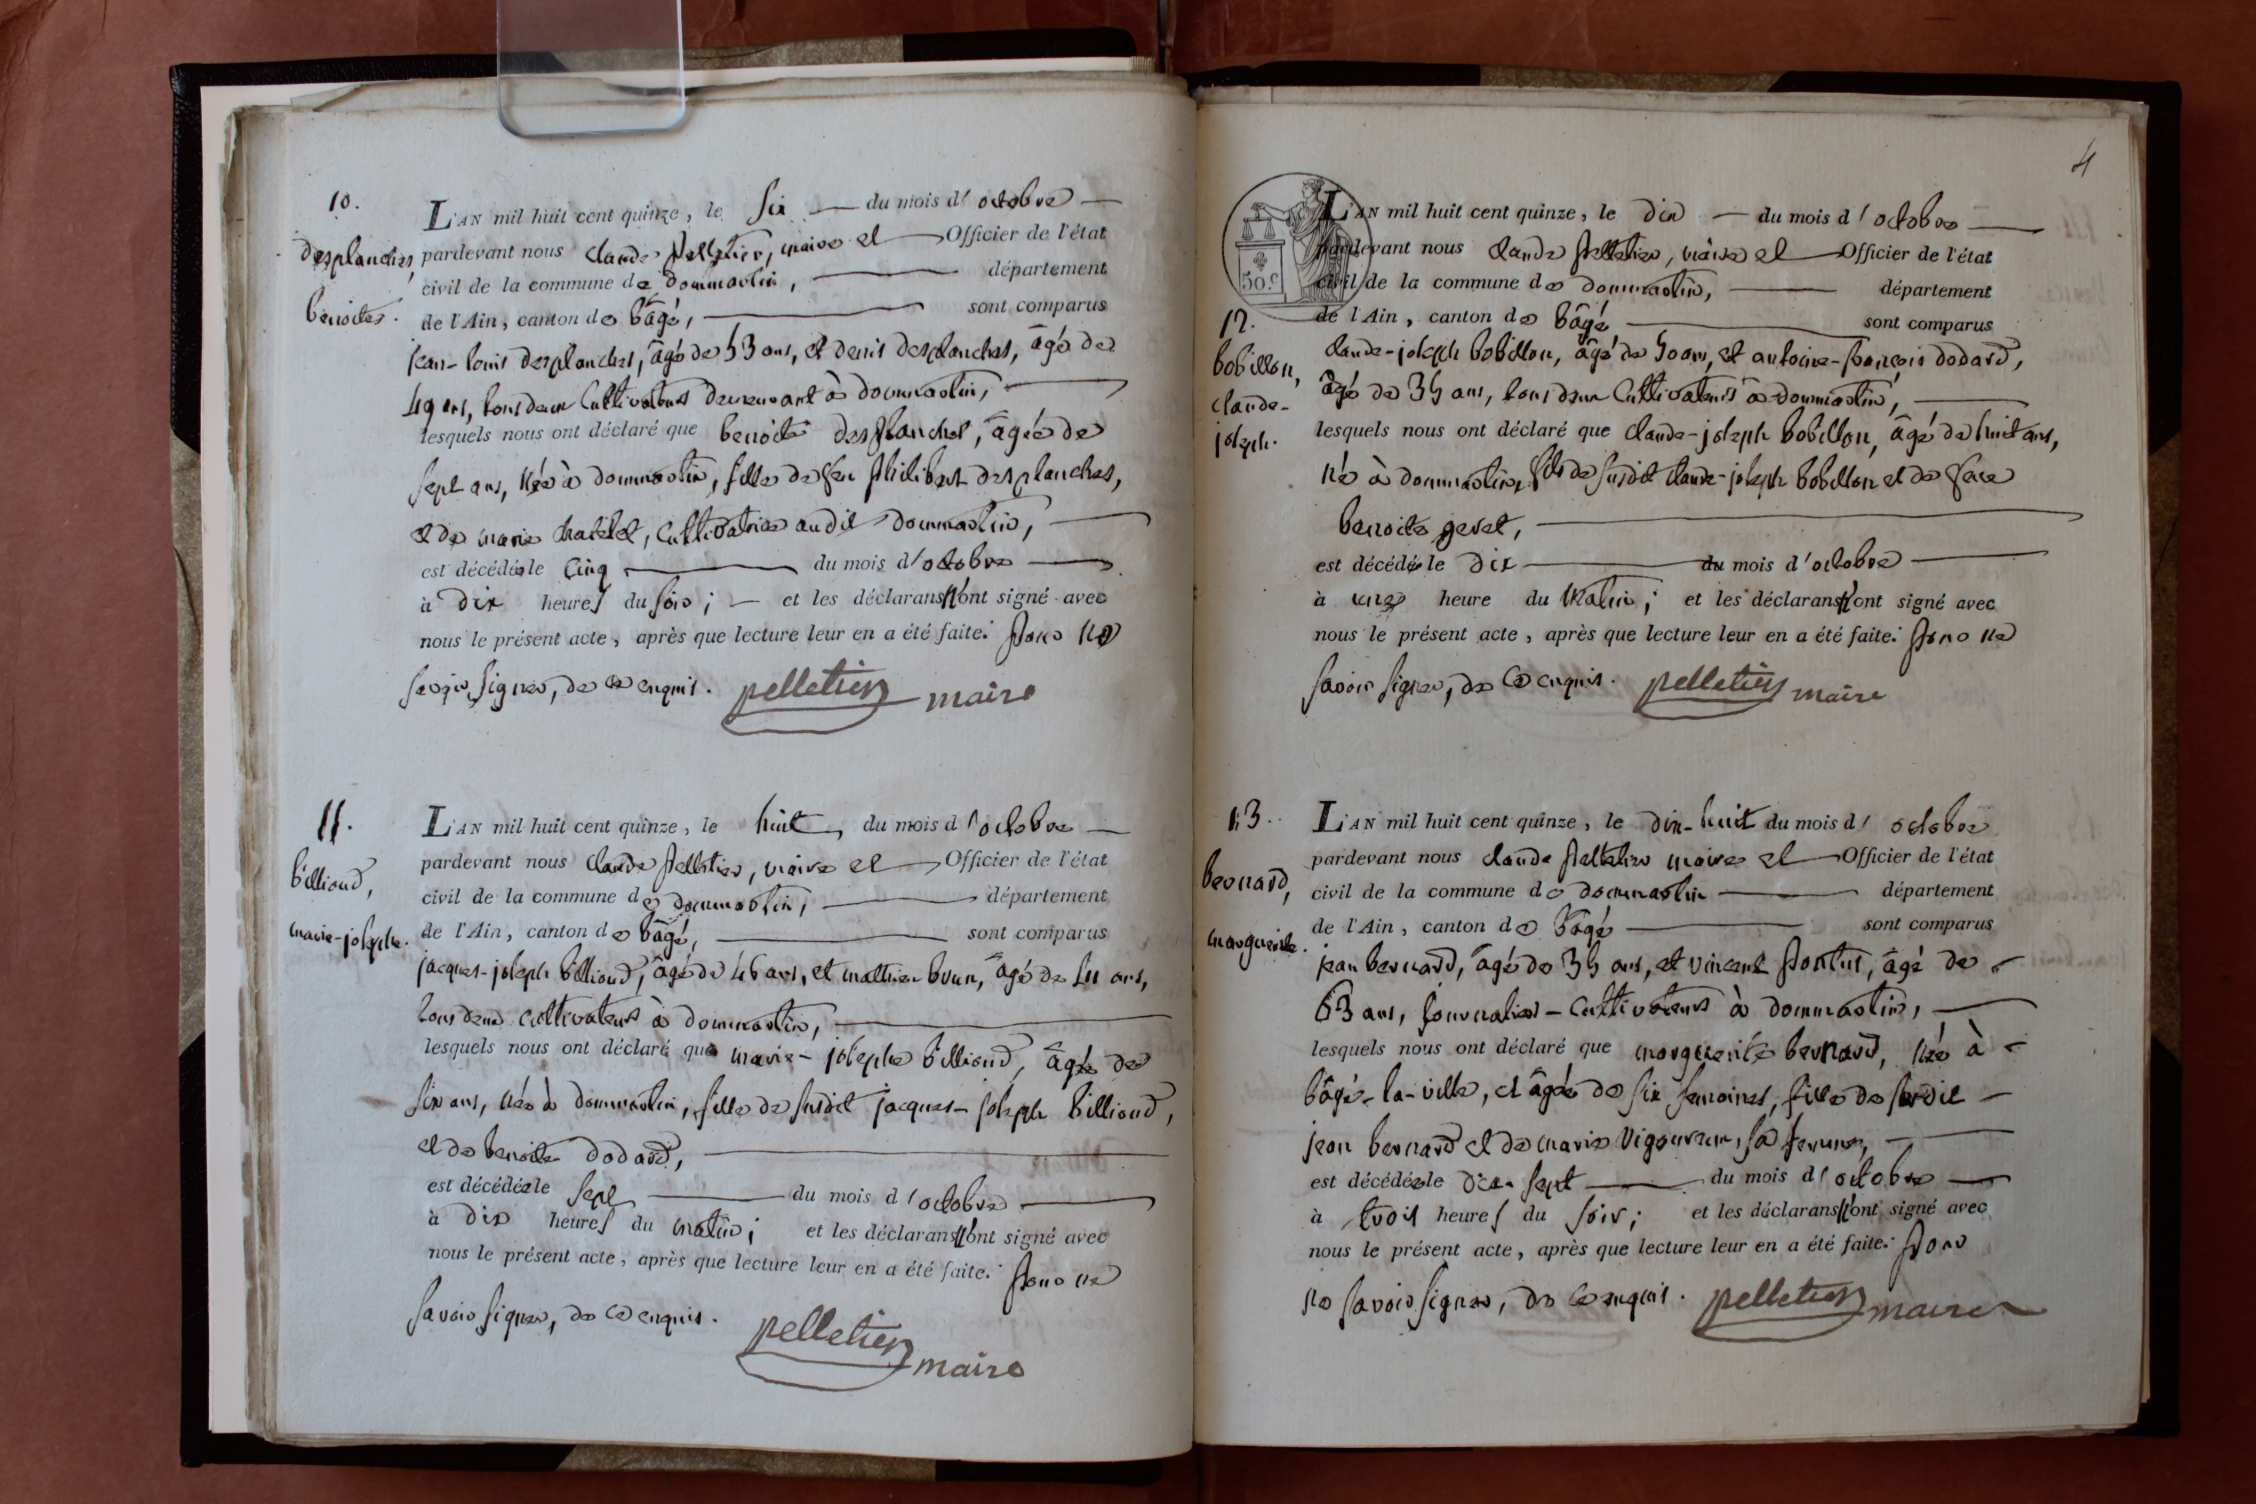 10.
desplanches,
benoite.
L'AN mil huit cent quinze, le six du mois d'octobre
pardevant nous claude pelletier, maire et Officier de l'état
civil de la commune de dommartin, département
de l'Ain, canton de bâgé, sont comparus
jean-louis desplanches, âgé de 53 ans, et denis desplanches, âgé de
49 ans, tous deux cultivateurs demeurant à dommartin,
lesquels nous ont déclaré que benoite desplanches, âgée de
sept ans, née à dommartin, fille de feu philibert desplanches,
et de marie, cultivatrice audit dommartin,
est décédée le cinq du mois d'octobre
à dix heures du soir; et les déclarans n'ont signé avec
nous le présent acte, après que lecture leur en a été faite. pour ne
savoir signer, de ce enquis. pelletier maire
11.
billioud,
marie-josephe.
L'AN mil huit cent quinze, le huit, du mois d'octobre
pardevant nous claude pelletier, maire et Officier de l'état
civil de la commune de dommartin, département
de l'Ain, canton de bâgé, sont comparus
jacques-joseph billioud, âgé de 46 ans, et mathieu brun, âgé de ans,
tous deux cultivateurs à dommartin,
lesquels nous ont déclaré que marie-josephe billioud, âgée de
six ans, née à dommartin, fille de susdit jacques-joseph billioud,
et de benoite dodard,
est décédée le sept du mois d'octobre
à dix heures du matin; et les déclarans n'ont signé avec
nous le présent acte, après que lecture leur en a été faite. pour ne
savoir signer, de ce enquis. pelletier maire
4
50.c
12.
bobillon,
claude-
joseph.
L'AN mil huit cent quinze, le dix du mois d'octobre
pardevant nous claude pelletier, maire et Officier de l'état
civil de la commune de dommartin, département
de l'Ain, canton de bâgé sont comparus
claude-joseph bobillon, âgé de 50 ans, et antoine-françois dodard,
âgé de 35 ans, tous deux cultivateurs à dommartin,
lesquels nous ont déclaré que claude-joseph bobillon, âgé de huit ans,
né à dommartin, fils de susdit claude-joseph bobillon et de feue
benoite gevet,
est décédé le dix du mois d'octobre
à une heure du matin; et les déclarans n'ont signé avec
nous le présent acte, après que lecture leur en a été faite. pour ne
savoir signer, de ce enquis. pelletier maire
13.
bernard,
marguerite.
L'AN mil huit cent quinze, le dix-huit du mois d'octobre
pardevant nous claude pelletier maire et Officier de l'état
civil de la commune de dommartin département
de l'Ain, canton de bâgé sont comparus
jean bernard, âgé de 35 ans, et vincent âgé de
63 ans, journaliers-cultivateurs à dommartin,
lesquels nous ont déclaré que marguerite bernard, née à
bâgé-la-ville, et âgée de six semaines, fille de susdit
jean bernard et de marie vigoureux, sa femme,
est décédée le dix-sept du mois d'octobre
à trois heures du soir; et les déclarans n'ont signé avec
nous le présent acte, après que lecture leur en a été faite. pour
ne savoir signer, de ce enquis. pelletier maire